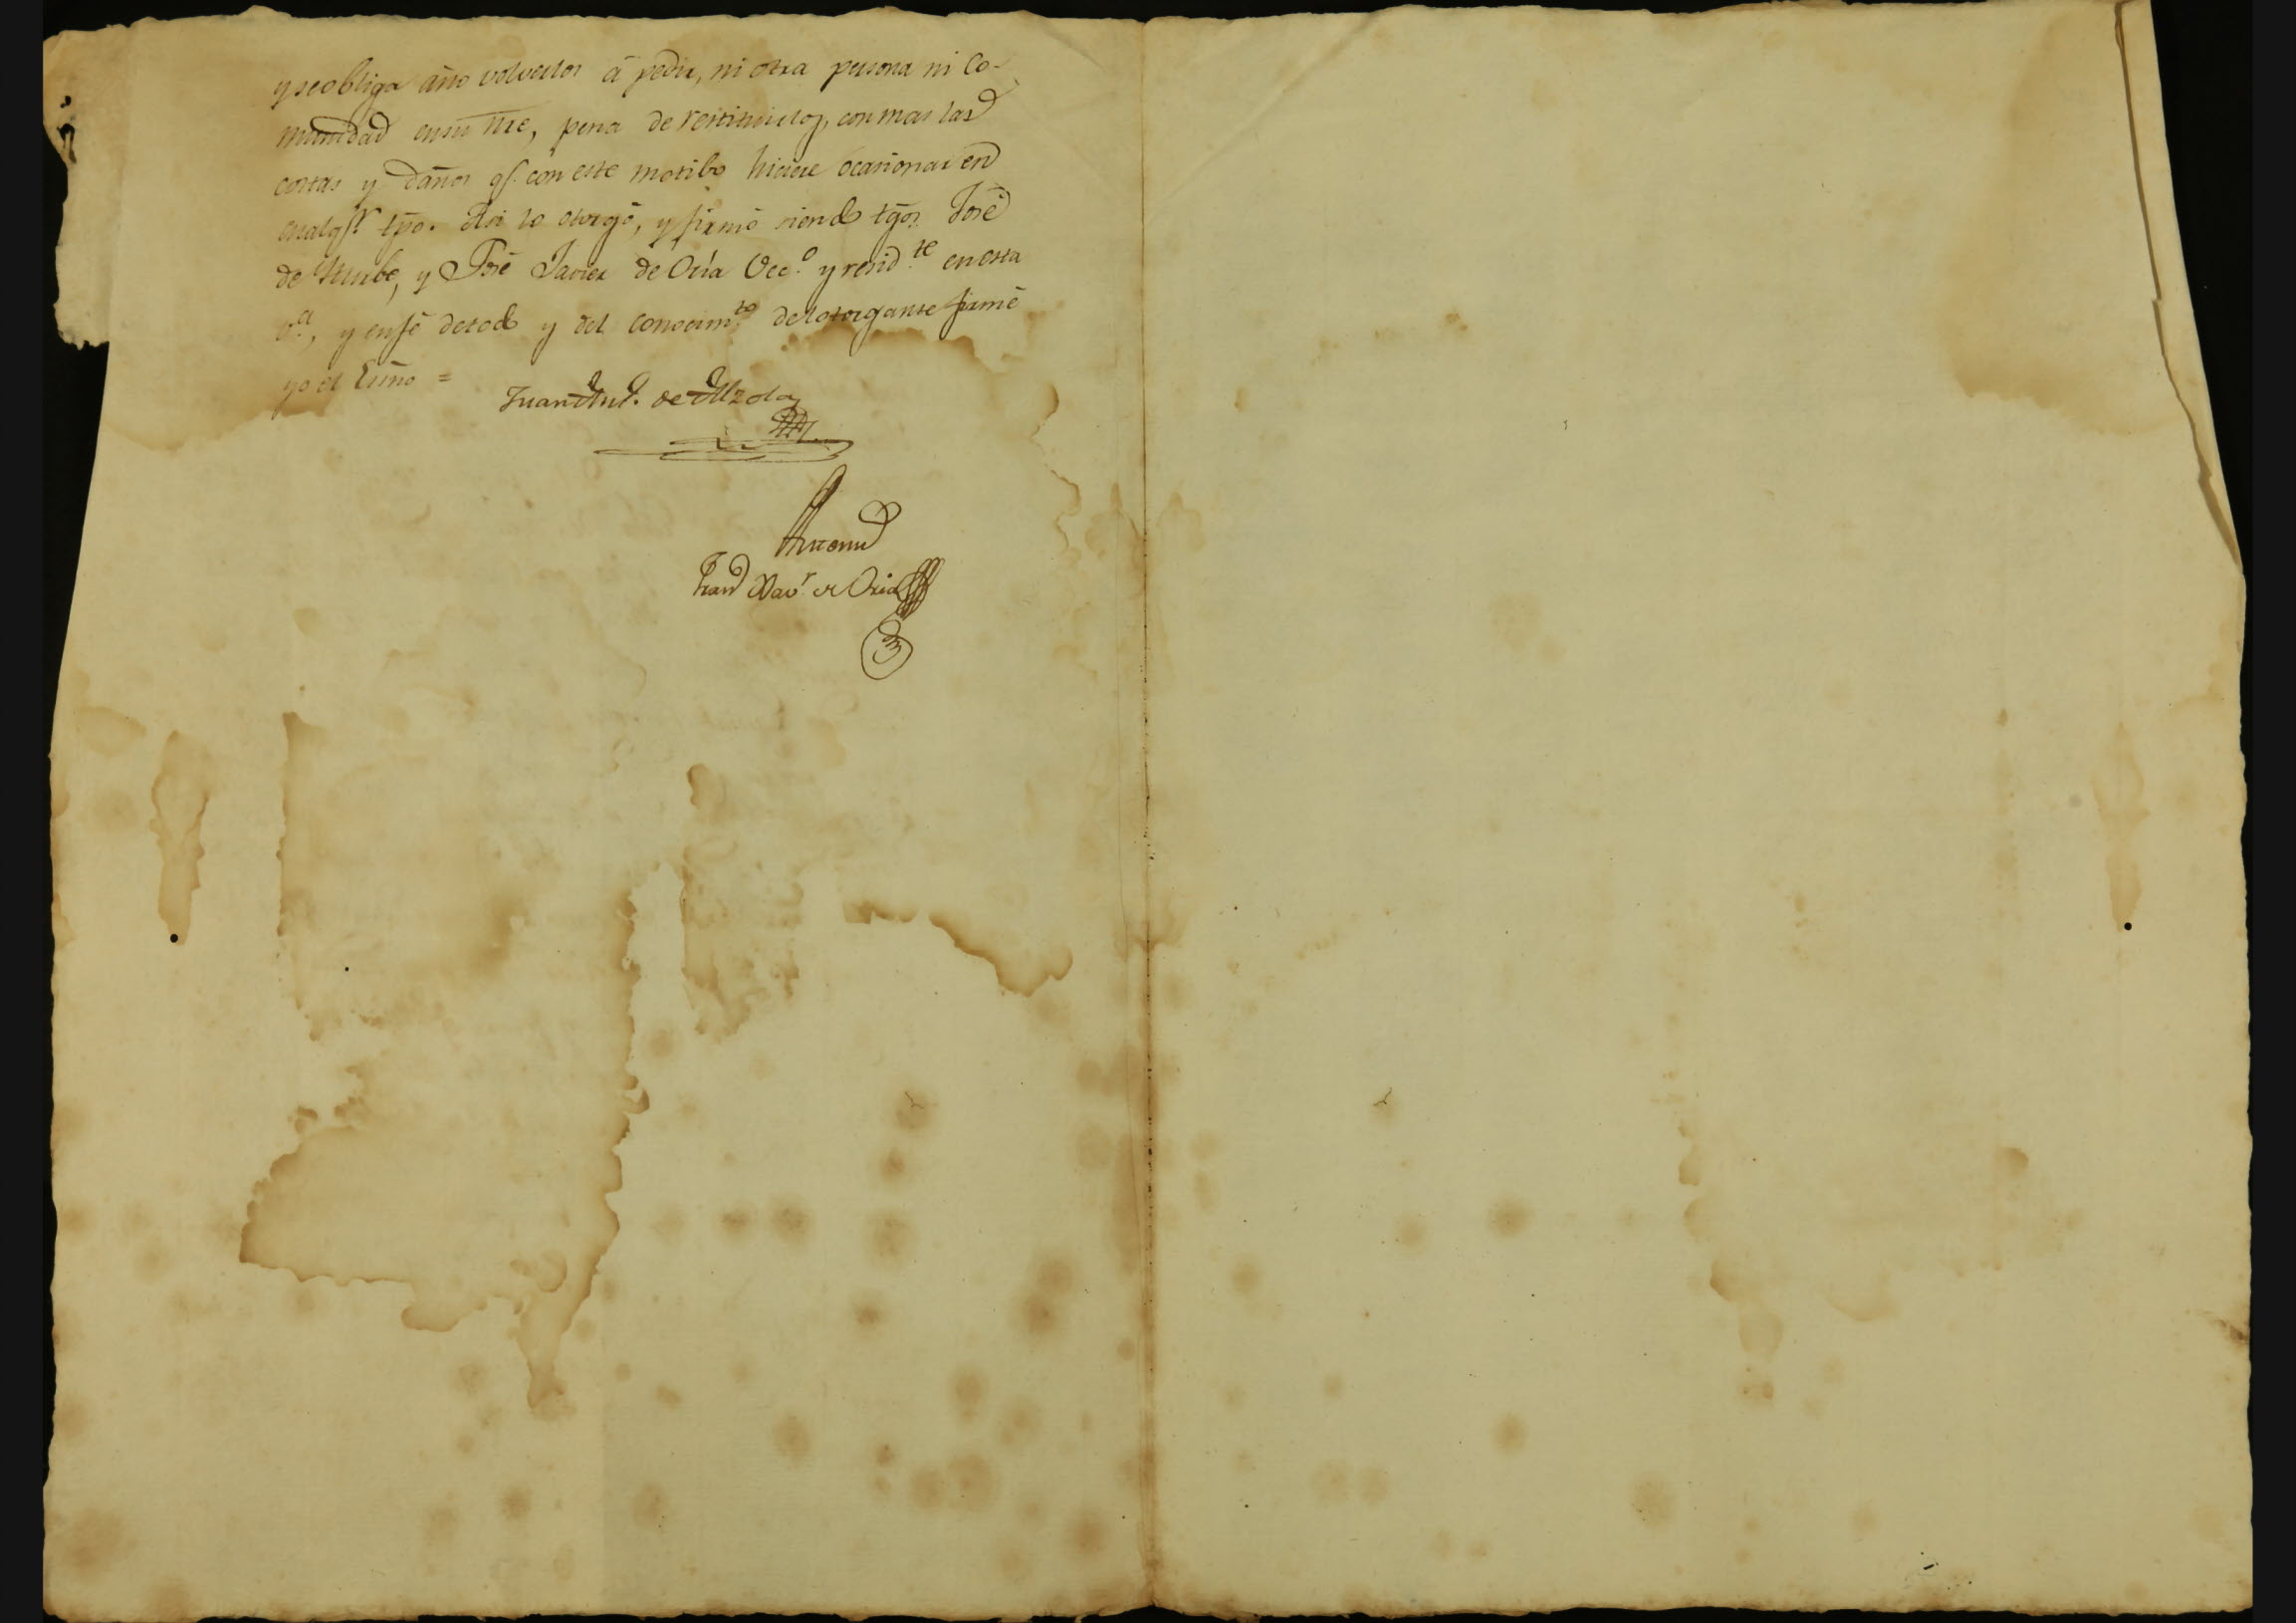 y se obliga año volverlos á pedir, ni otra persona ni Co-
munidad en su nre, pena de restituirlos, con mas las
costas y daños q.e con este motibo hiciere ocasionar en
qualq.r tpo. Asi lo otorgó, y firmó siendo tgos. José
de Yturbe, y José Javier de Oria Vec.o y resid.te en esta
v.a, y en fé de todo y del conocim.to del otorgante firmé
yo el Essno =
Juan Ant.o de Alzola
Ante mi
Juan Xav.r de Oria